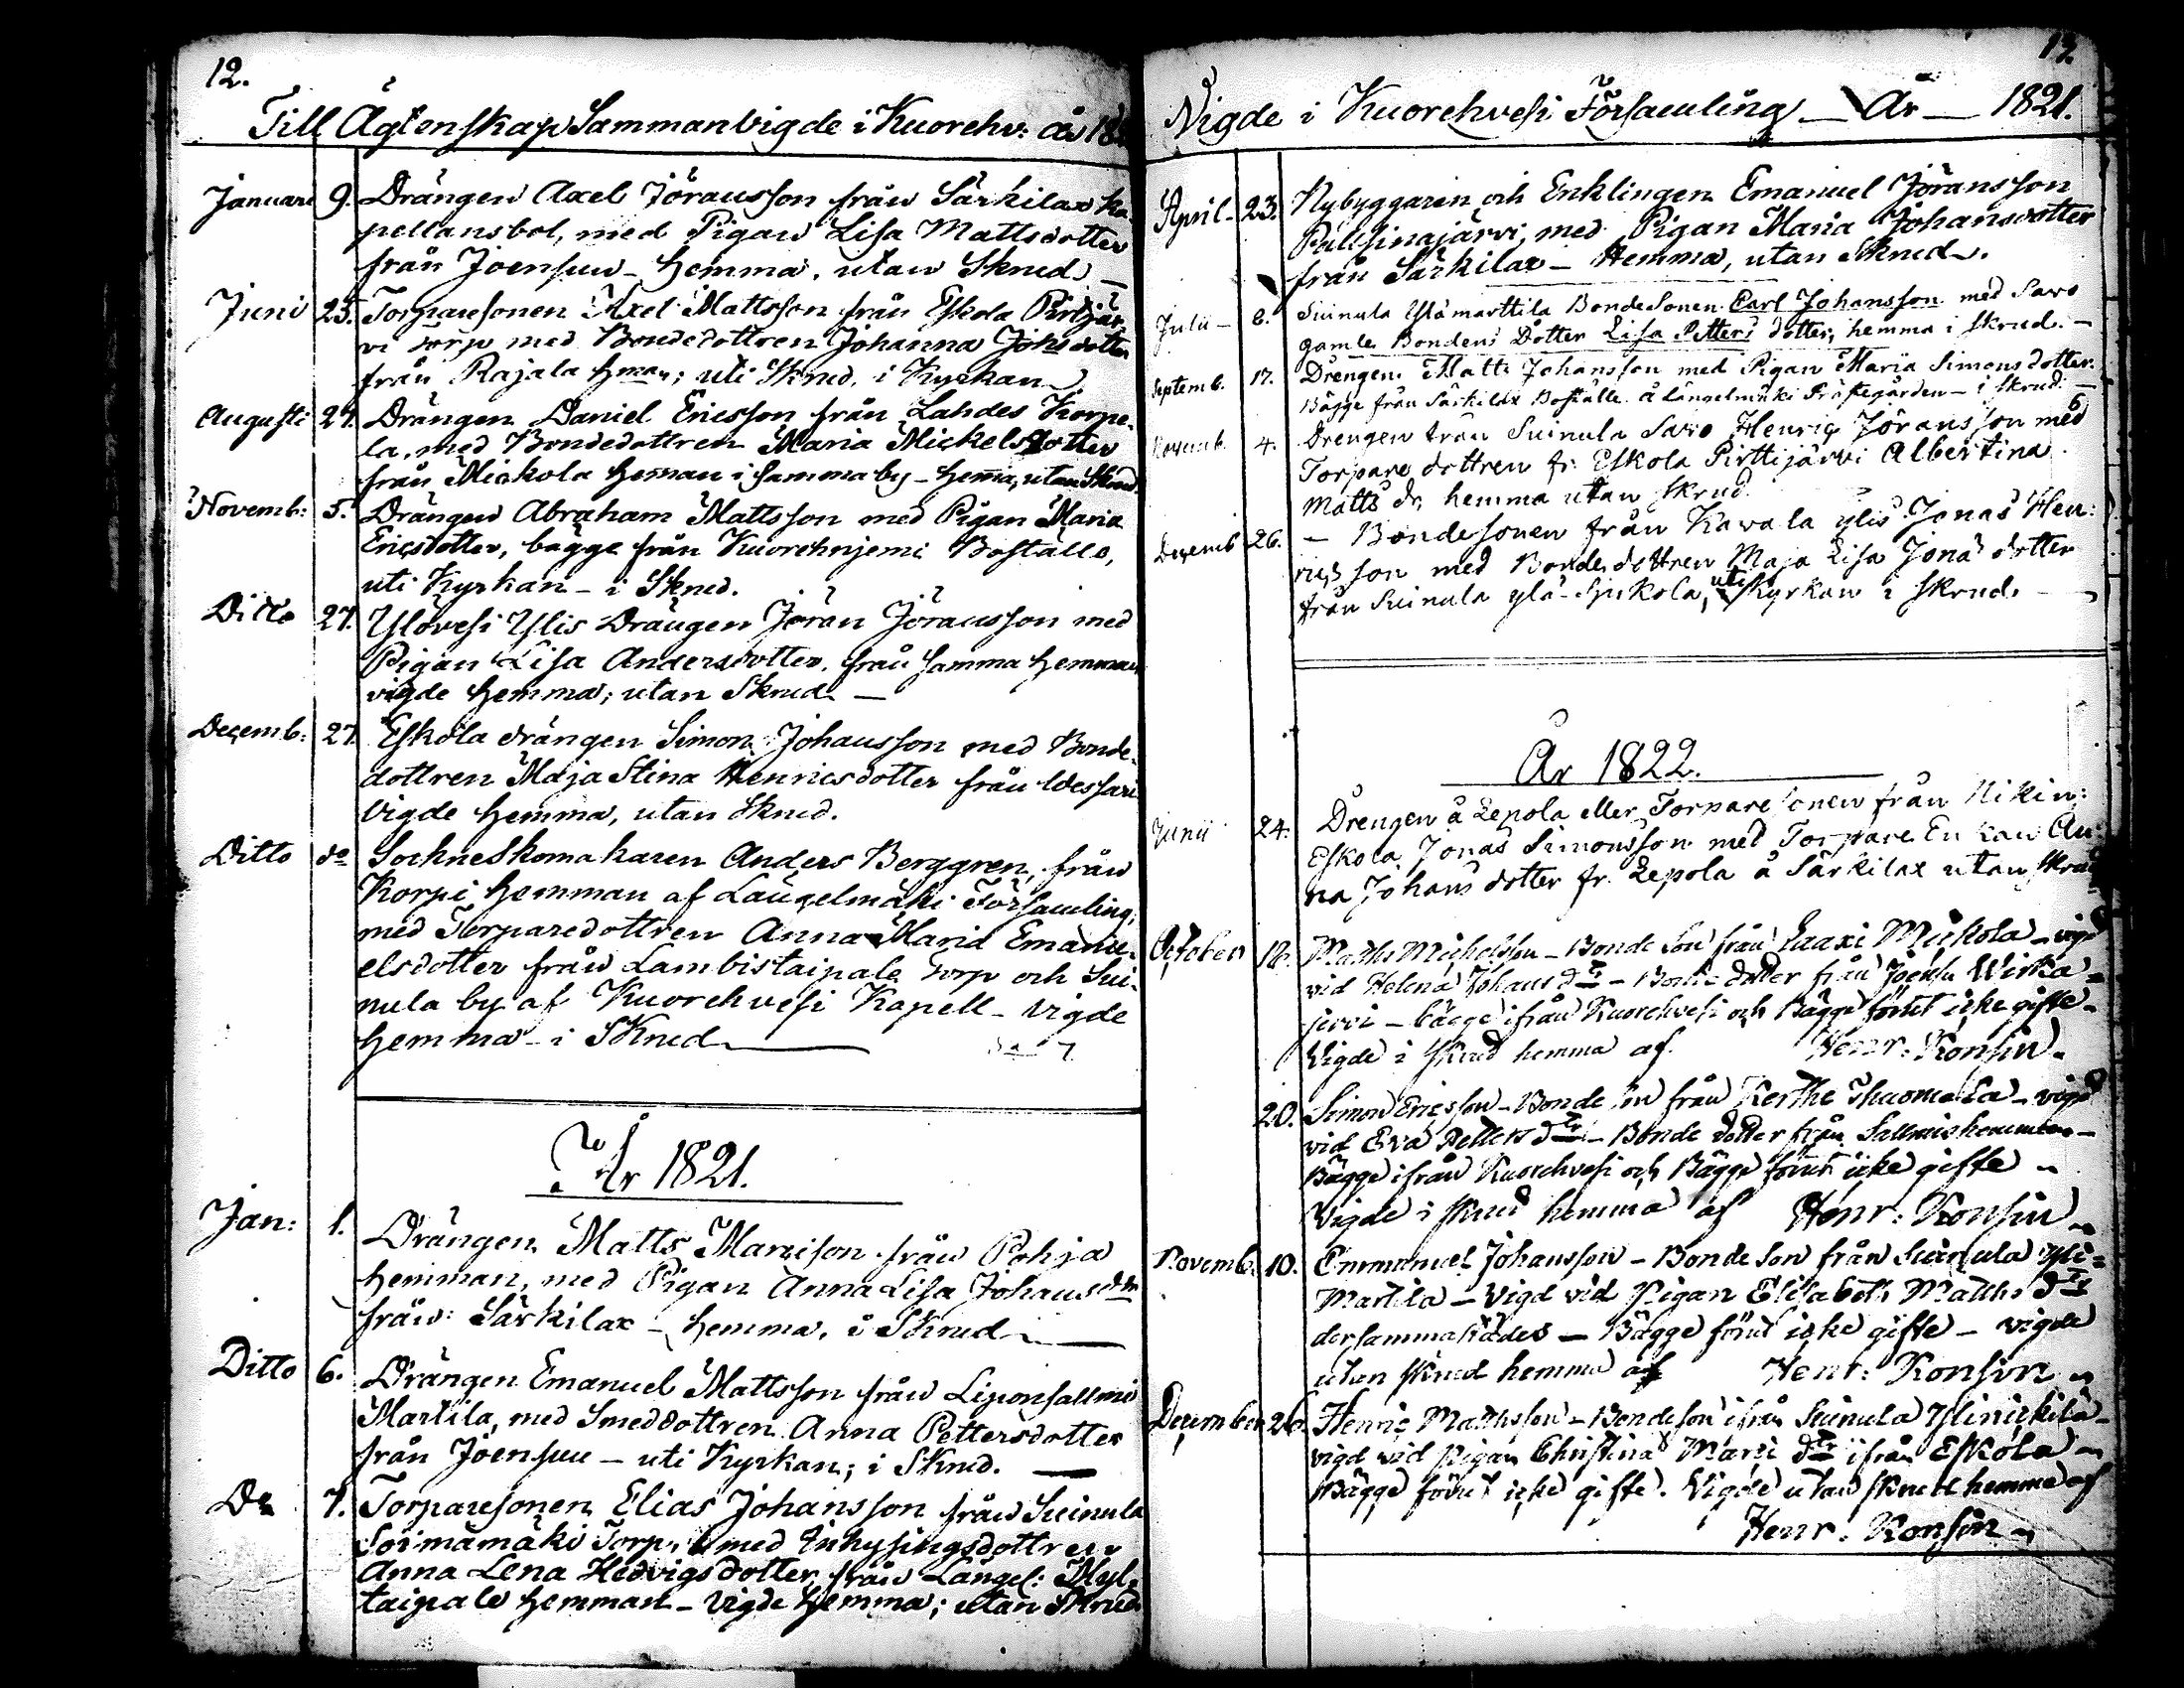 12.
Till Ägtenskap Sammanvigde i Kuorehv: år 18
Januari 9. Drängen Axel Jöransson från Särkilax ka-
pellansbol, med Pigan Lisa Mattsdotter
från Joensuu - hemma, utan Skrud -
Juni 25. Torparesonen Axel Mattsson från Eskola Pirtijär-
vi torp med Bondedottren Johanna Johsdotter
från Rajala hman; uti Skrud, i Kyrkan
Augusti 27. Drängen Daniel Ericsson från Lahdes Korpe-
la, med Bondedottren Maria Mickelsdotter
från Mickola heman i samma by - hema, utan Skrud.
Novemb: 5. Drängen Abraham Mattsson med Pigan Maria
Ericsdotter, bägge från Kuorehnjemi Boställe,
uti Kyrkan - i Skrud.
Ditto 27. Ylövesi Ylis Drängen Jöran Jöransson med
Pigan Lisa Andersdotter från samma hemman
vigde hemma; utan Skrud -
Decemb: 27. Eskola drängen Simon Johansson med Bonde-
dottren Maja Stina Henricsdotter från Wessari
Vigde hemma, utan Skrud.
Ditto do Sockneskomakaren Anders Berggren, från
Korpi hemman af Längelmäki Församling,
med Torparedottren Anna Maria Emanu-
elsdotter från Lambistaipale torp och Sui-
nula by af Kuorehvesi Kapell - vigde
hemma - i Skrud
År 1821.
Jan: 1. Drängen Matts Marcison från Pohja
hemman, med Pigan Anna Lisa Johansdtr
från Särkilax - hemma, i Skrud -
Ditto 6. Drängen Emanuel Mattsson från Leponsallmi
Martila, med Smeddottren Anna Pettersdotter
från Joensuu - uti Kyrkan; i Skrud. -
Do 7. Torparesonen Elias Johansson från Suinula
Soimamäki Torp, med Inhysingsdottren
Anna Lena Hedvigsdotter från Längel: Myl-
taipale hemman - Vigde hemma; utan Skrud
12.
Vigde i Kuorehvesi Församling - År - 1821.
April - 23. Nybyggaren och Enklingen Emanuel Jöransson
Pullsinajärvi, med Pigan Maria Johansdotter
från Särkilax - Hemma, utan Skrud.
Julii - 8. Suinula Ylämarttila BondeSonen Carl Johansson med Savo
gamle Bondens Dotter Lisa Petters dotter, hemma i skrud. -
Septemb. 17. Drengen Matts Johansson med Pigan Maria Simonsdotter.
Bägge från Särkilax Boställe å Längelmäki Prästegården - i skrud. -
Novemb. 4. Drengen från Suinula Savo Henric Jöransson med
Torpare dottren fr. Eskola Pirttijärvi Albertina
Matts dr, hemma utan skrud.
Decemb 26. - Bondesonen från Kavala ylis Jonas Hen:
ricsson med Bondedottren Maja Lisa Jonasdotter
från Suinula ylä-Sjukola, uti Kyrkan i skrud. -
År 1822.
Junii 24. Drengen å Lepola eller Torparesonen från Nikin:
Eskola Jonas Simonsson med Torpare Enkan An:
na Johans dotter fr. Lepola å Särkilax utan skrud
October 18. Maths Michelsson - Bonde Son från Laaxi Mickola - vigd
vid Helena Johans dtr - Bonde dotter från Joensu Wirka=
jervi - bägge ifrån Kuorehvesi och Bägge förut icke gifte -
Vigde i Skrud hemma af Henr: Konsin.
20. Simon Ericsson - Bonde Son från Kerthe Thuomala - vigd
vid Eva Petters dtr - Bonde dotter från Sallmis hemman -
Bägge ifrån Kuorehvesi och Bägge förut icke gifte -
Vigde i skrud hemma af Henr: Konsin
Novemb. 10. Emmanuel Johansson - Bonde Son från Suinula Yli=
Martila - Vigd vid Pigan Elisabeth Matths dtr
dersammastädes - Bägge förut icke gifte - vigde
utan skrud hemma af Henr: Konsin
December 26. Henric Mathsson - Bondeson ifrån Suinula Ylinickilä -
vigd vid Pigan Christina Marci dtr ifrån Eskola -
Bägge förut icke gifte. Vigde utan skrud hemma af
Henr: Konsin